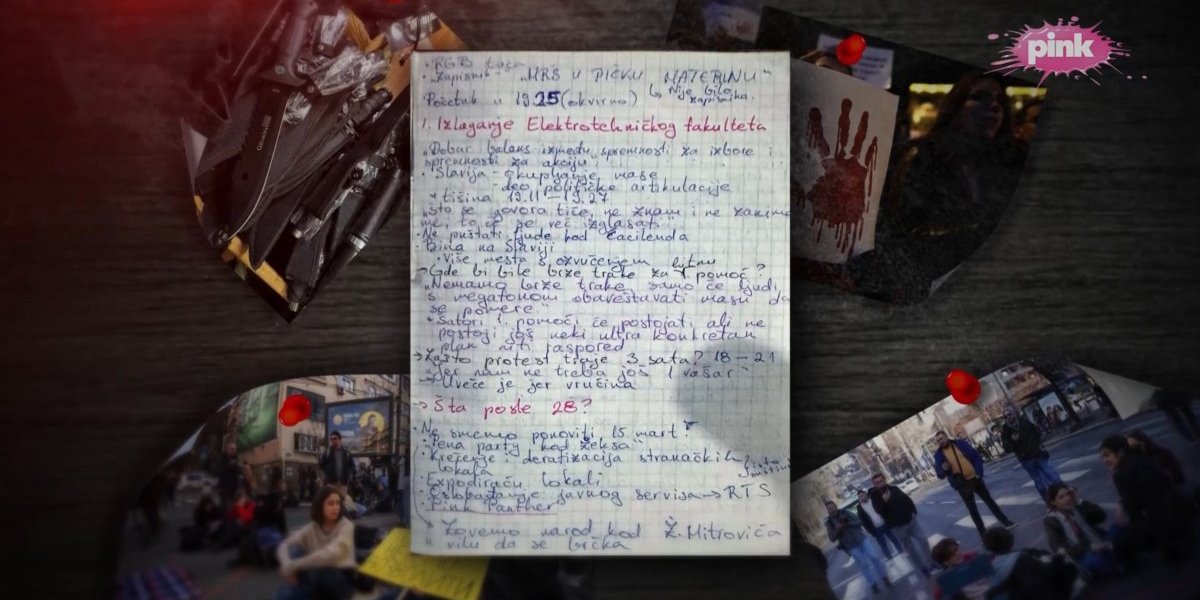 pink
• RGB tača
• "Zapisnik" - "MRŠ U PIČKU MATERINU"
↳ Nije bilo zapisnika.
Početak u 19.25 (okvirno)
1. Izlaganje Elektrotehničkog fakulteta
"Dobar balans između spremnosti za izbore i
spremnosti za akciju"
• Slavija - okupljanje mase
- deo političke artikulacije
* tišina 19.11 - 19.27
"što se govora tiče, ne znam i ne zanima
me, to će se već izglasati"
• Ne puštati ljude kod Ćacilenda
• Bina na Slaviji
• Više mesta s ozvučenjem bitnu
→ Gde bi bile brze trake za 1 pomoć?
"Nemamo brze trake, samo će ljudi
s megafonom obaveštavati masu da
se pomere"
• Šatori 1 pomoći će postojati, ali ne
postoji još neki ultra konkretan
plan niti raspored
→ Zašto protest traje 3 sata? 18 - 21
"jer nam ne treba još 1 vašar"
→ Uveče je jer vrućina
→ Šta posle 28?
• Ne smemo ponoviti 15. mart!
• "Pena party kod Žeksa"
• Krečenje i deratizacija stranačkih
lokala
• Expodiraću lokali
• javnog servisa → RTS
• Pink Panther
Zovemo narod kod Ž. Mitrovića
u vilu da se brčka